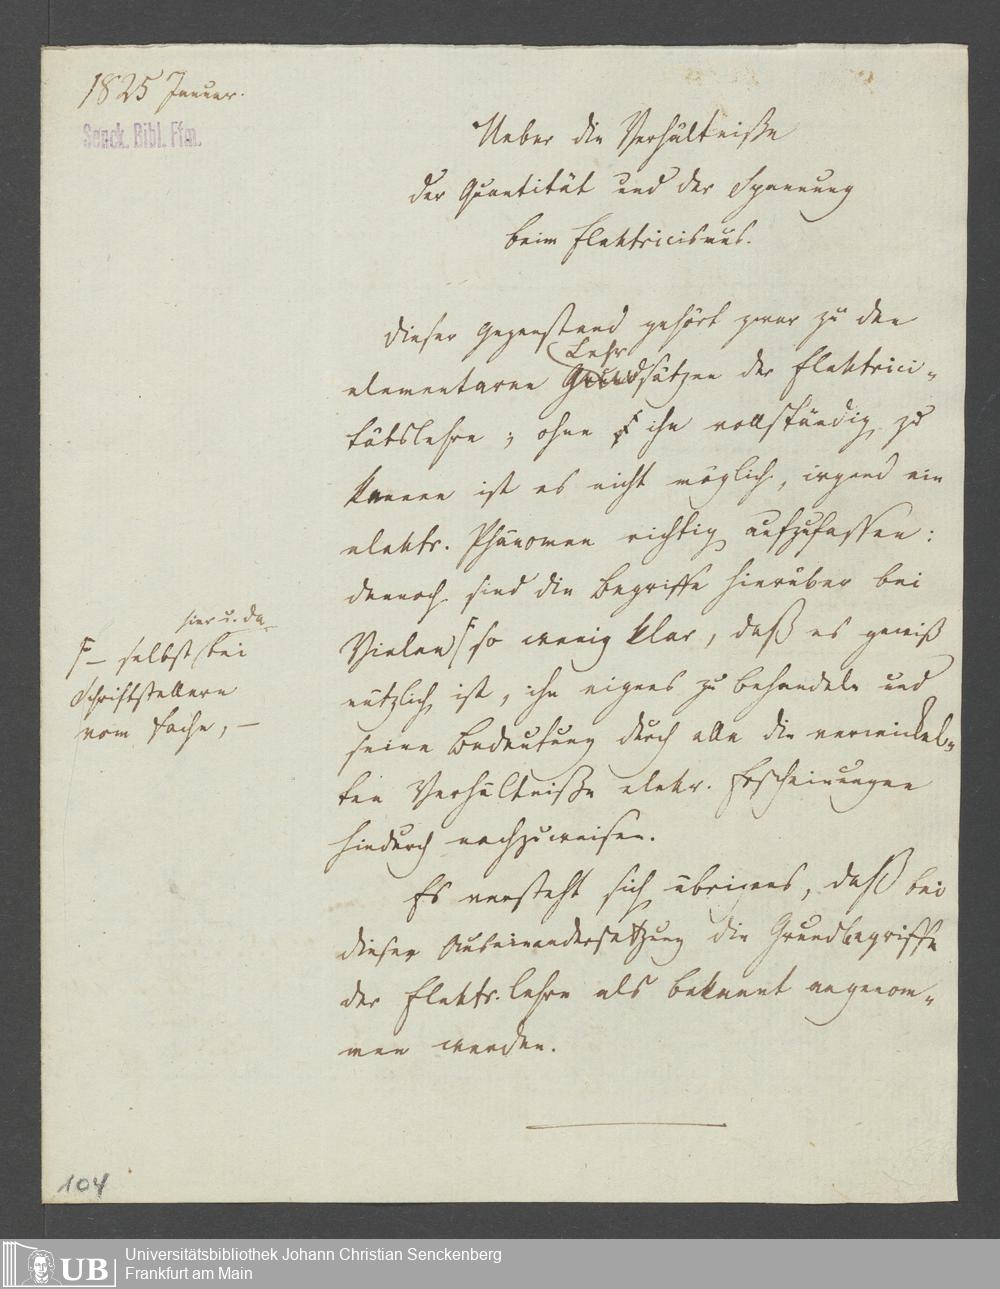 1825 Januar.
Senck. Bibl. Ffm.
Ueber die Verhältniße
der Quantität und der Spannung
beim Elektricismus.
Dieser Gegenstand gehört zwar zu den
Lehr
elementaren Grundsätzen der Elektrici-
tätslehre; ohne ihn vollständig zu
kennen ist es nicht möglich, irgend ein
elektr. Phänomen richtig aufzufassen:
dennoch sind die Begriffe hierüber bei
Vielen so wenig klar, daß es gewiß
nützlich ist, ihn eigens zu behandeln und
seine Bedeutung durch alle die verwickel-
ten Verhältniße elekr. Erscheinungen
hindurch nachzuweisen.
Es versteht sich übrigens, daß bei
dieser Auseinandersetzung die Grundbegriffe
der Elektr. lehre als bekannt angenom-
men werden.
hier u. da
– selbst bei
Schriftstellern
vom Fache, –
104
UB
Universitätsbibliothek Johann Christian Senckenberg
Frankfurt am Main